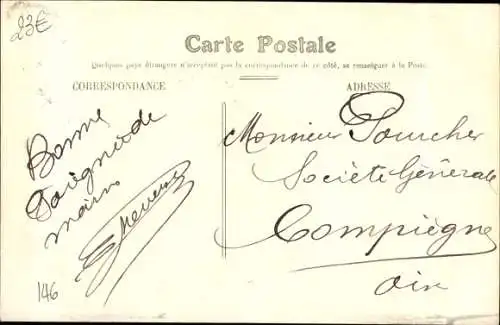 23€
Carte Postale
Quelques pays étrangers n'acceptent pas la correspondance de ce côté, se renseigner à la Poste.
CORRESPONDANCE
ADRESSE
Bonne
Poignée de
main
Monsieur Poucher
Société Générale
Compiègne
Oise
146